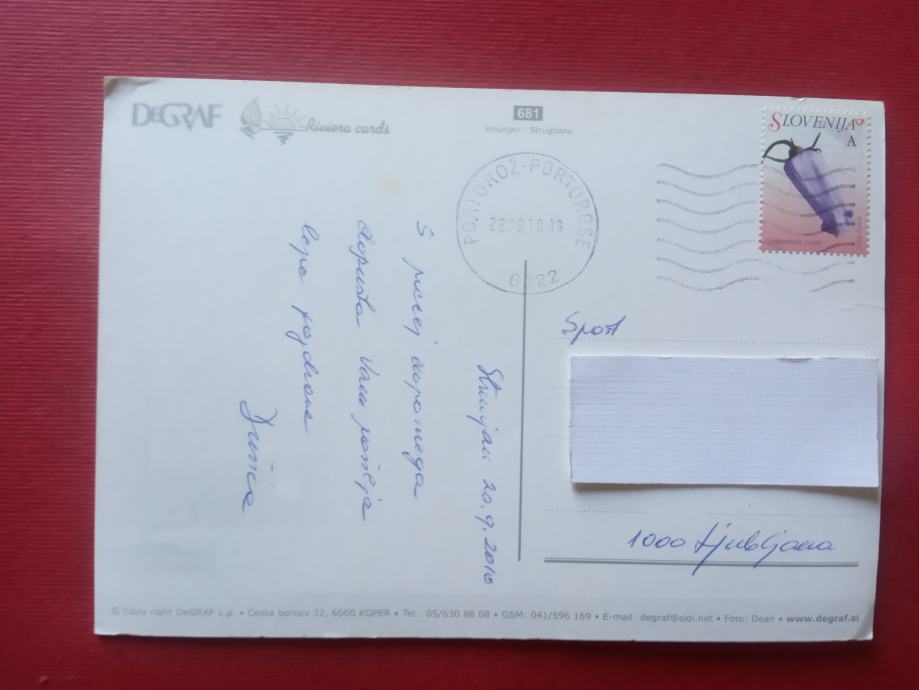 DeGRAF
Riviera cards
681
Strunjan - Strugnano
SLOVENIJA
A
PORTOROŽ-PORTOROSE
22.09.10-19
6322
Strunjan 20.9.2010
S
dopusta Vam pošilja
lepe pozdrave
Dušica
Šport
1000 Ljubljana
© Copy right DeGRAF s.p. • Cesta borcev 32, 6000 KOPER • Tel.: 05/630 88 08 • GSM: 041/596 169 • E-mail: degraf@siol.net • Foto: Dean • www.degraf.si